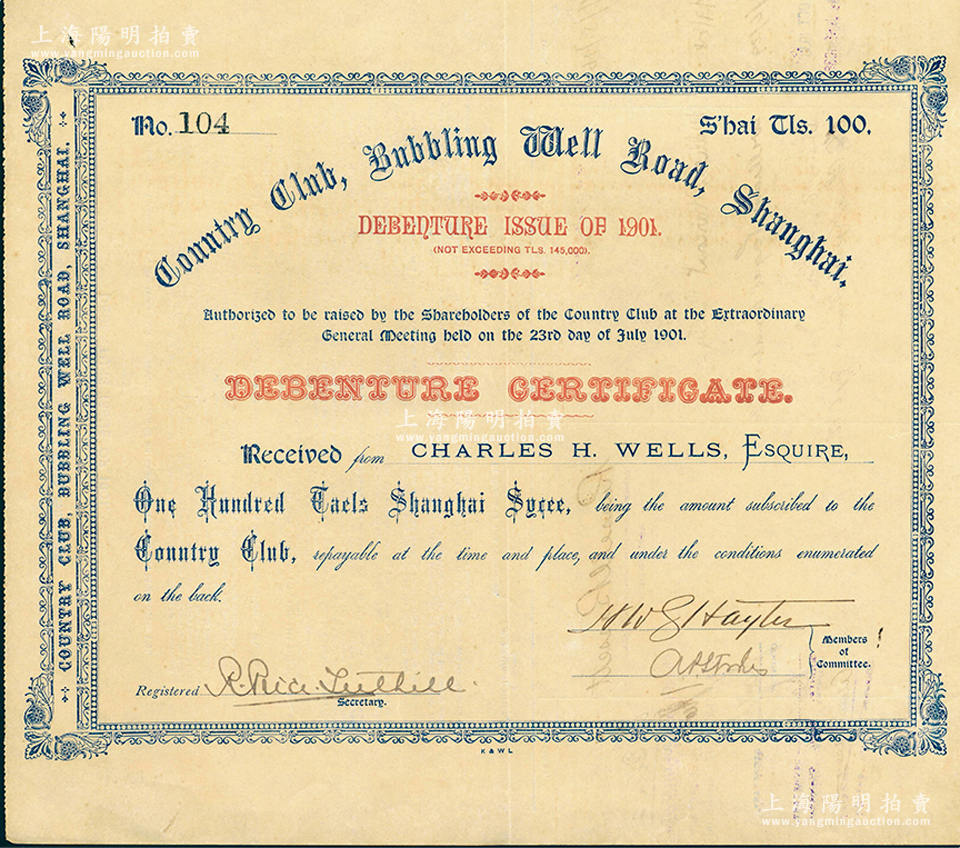 上海陽明拍賣
www.yangmingauction.com
No. 104
S'hai Tls. 100.
Country Club, Bubbling Well Road, Shanghai.
DEBENTURE ISSUE OF 1901.
(NOT EXCEEDING TLS. 145,000).
Authorized to be raised by the Shareholders of the Country Club at the Extraordinary
General Meeting held on the 23rd day of July 1901.
DEBENTURE CERTIFICATE.
上海陽明拍賣
www.yangmingauction.com
Received from CHARLES H. WELLS, ESQUIRE,
One Hundred Taels Shanghai Sycee, being the amount subscribed to the
Country Club, repayable at the time and place, and under the conditions enumerated
on the back.
Members
of
Committee.
Registered R. Rice Tuthill.
Secretary.
K & W L
COUNTRY CLUB, BUBBLING WELL ROAD, SHANGHAI.
上海陽明拍賣
www.yangmingauction.com